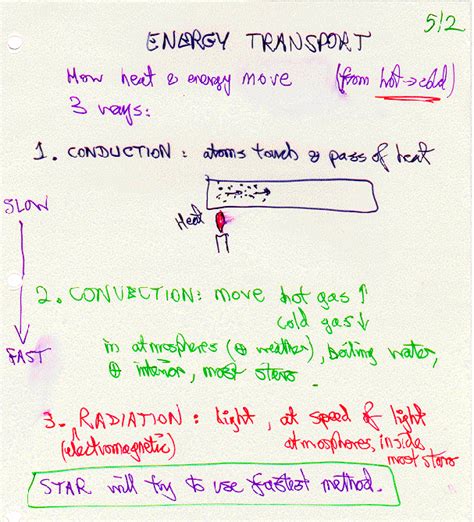 5/2
ENERGY TRANSPORT
How heat & energy move (from hot→cold)
3 ways:
1. CONDUCTION: atoms touch & pass of heat
SLOW
Heat
2. CONVECTION: move hot gas ↑
cold gas ↓
in atmospheres (⊕ weather), boiling water,
FAST
⊕ interior, most stars.
3. RADIATION: light, at speed of light
(electromagnetic) atmospheres, inside
most stars
STAR will try to use fastest method.